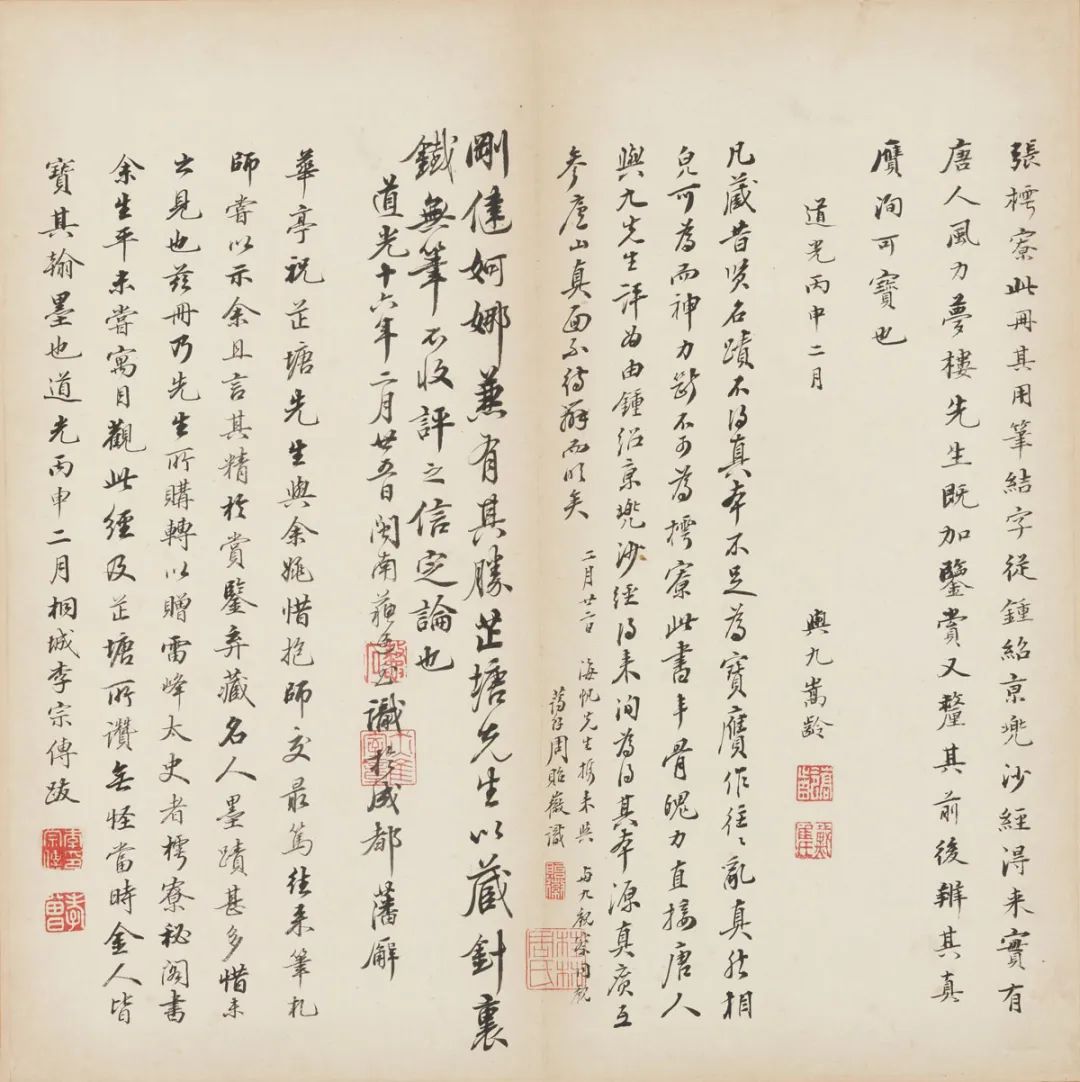 張樗寮此冊其用筆結字從鍾紹京兜沙經得来實有
唐人風力夢樓先生既加鑒賞又釐其前後辨其真
贋洵可寶也
道光丙申二月
與九嵩齡
凡藏昔贤名蹟不得真本不足為寶贋作往〻亂真然相
皃可為而神力斷不可為樗寮此書丰骨魄力直接唐人
與九先生評為由鍾紹京兜沙經得来洵為得其本源真贋互
参廬山真面不待辭而明矣
二月廿二日
海帆先生携来與
與九觀察同觀
周貽徽識
剛健婀娜兼有其勝芷塘先生以藏針裏
鐵無筆不收評之信定論也
道光十六年二月廿五日閩南蘇廷玉識於成都藩廨
華亭祝芷塘先生與余姚惜抱師交最篤往来筆札
師嘗以示余且言其精於賞鑒弆藏名人墨蹟甚多惜未
之見也茲冊乃先生所購轉以贈雷峰太史者樗寮秘阁書
余生平未嘗寓目觀此經及芷塘所讚無怪當時金人皆
寶其翰墨也道光丙申二月桐城李宗傳跋